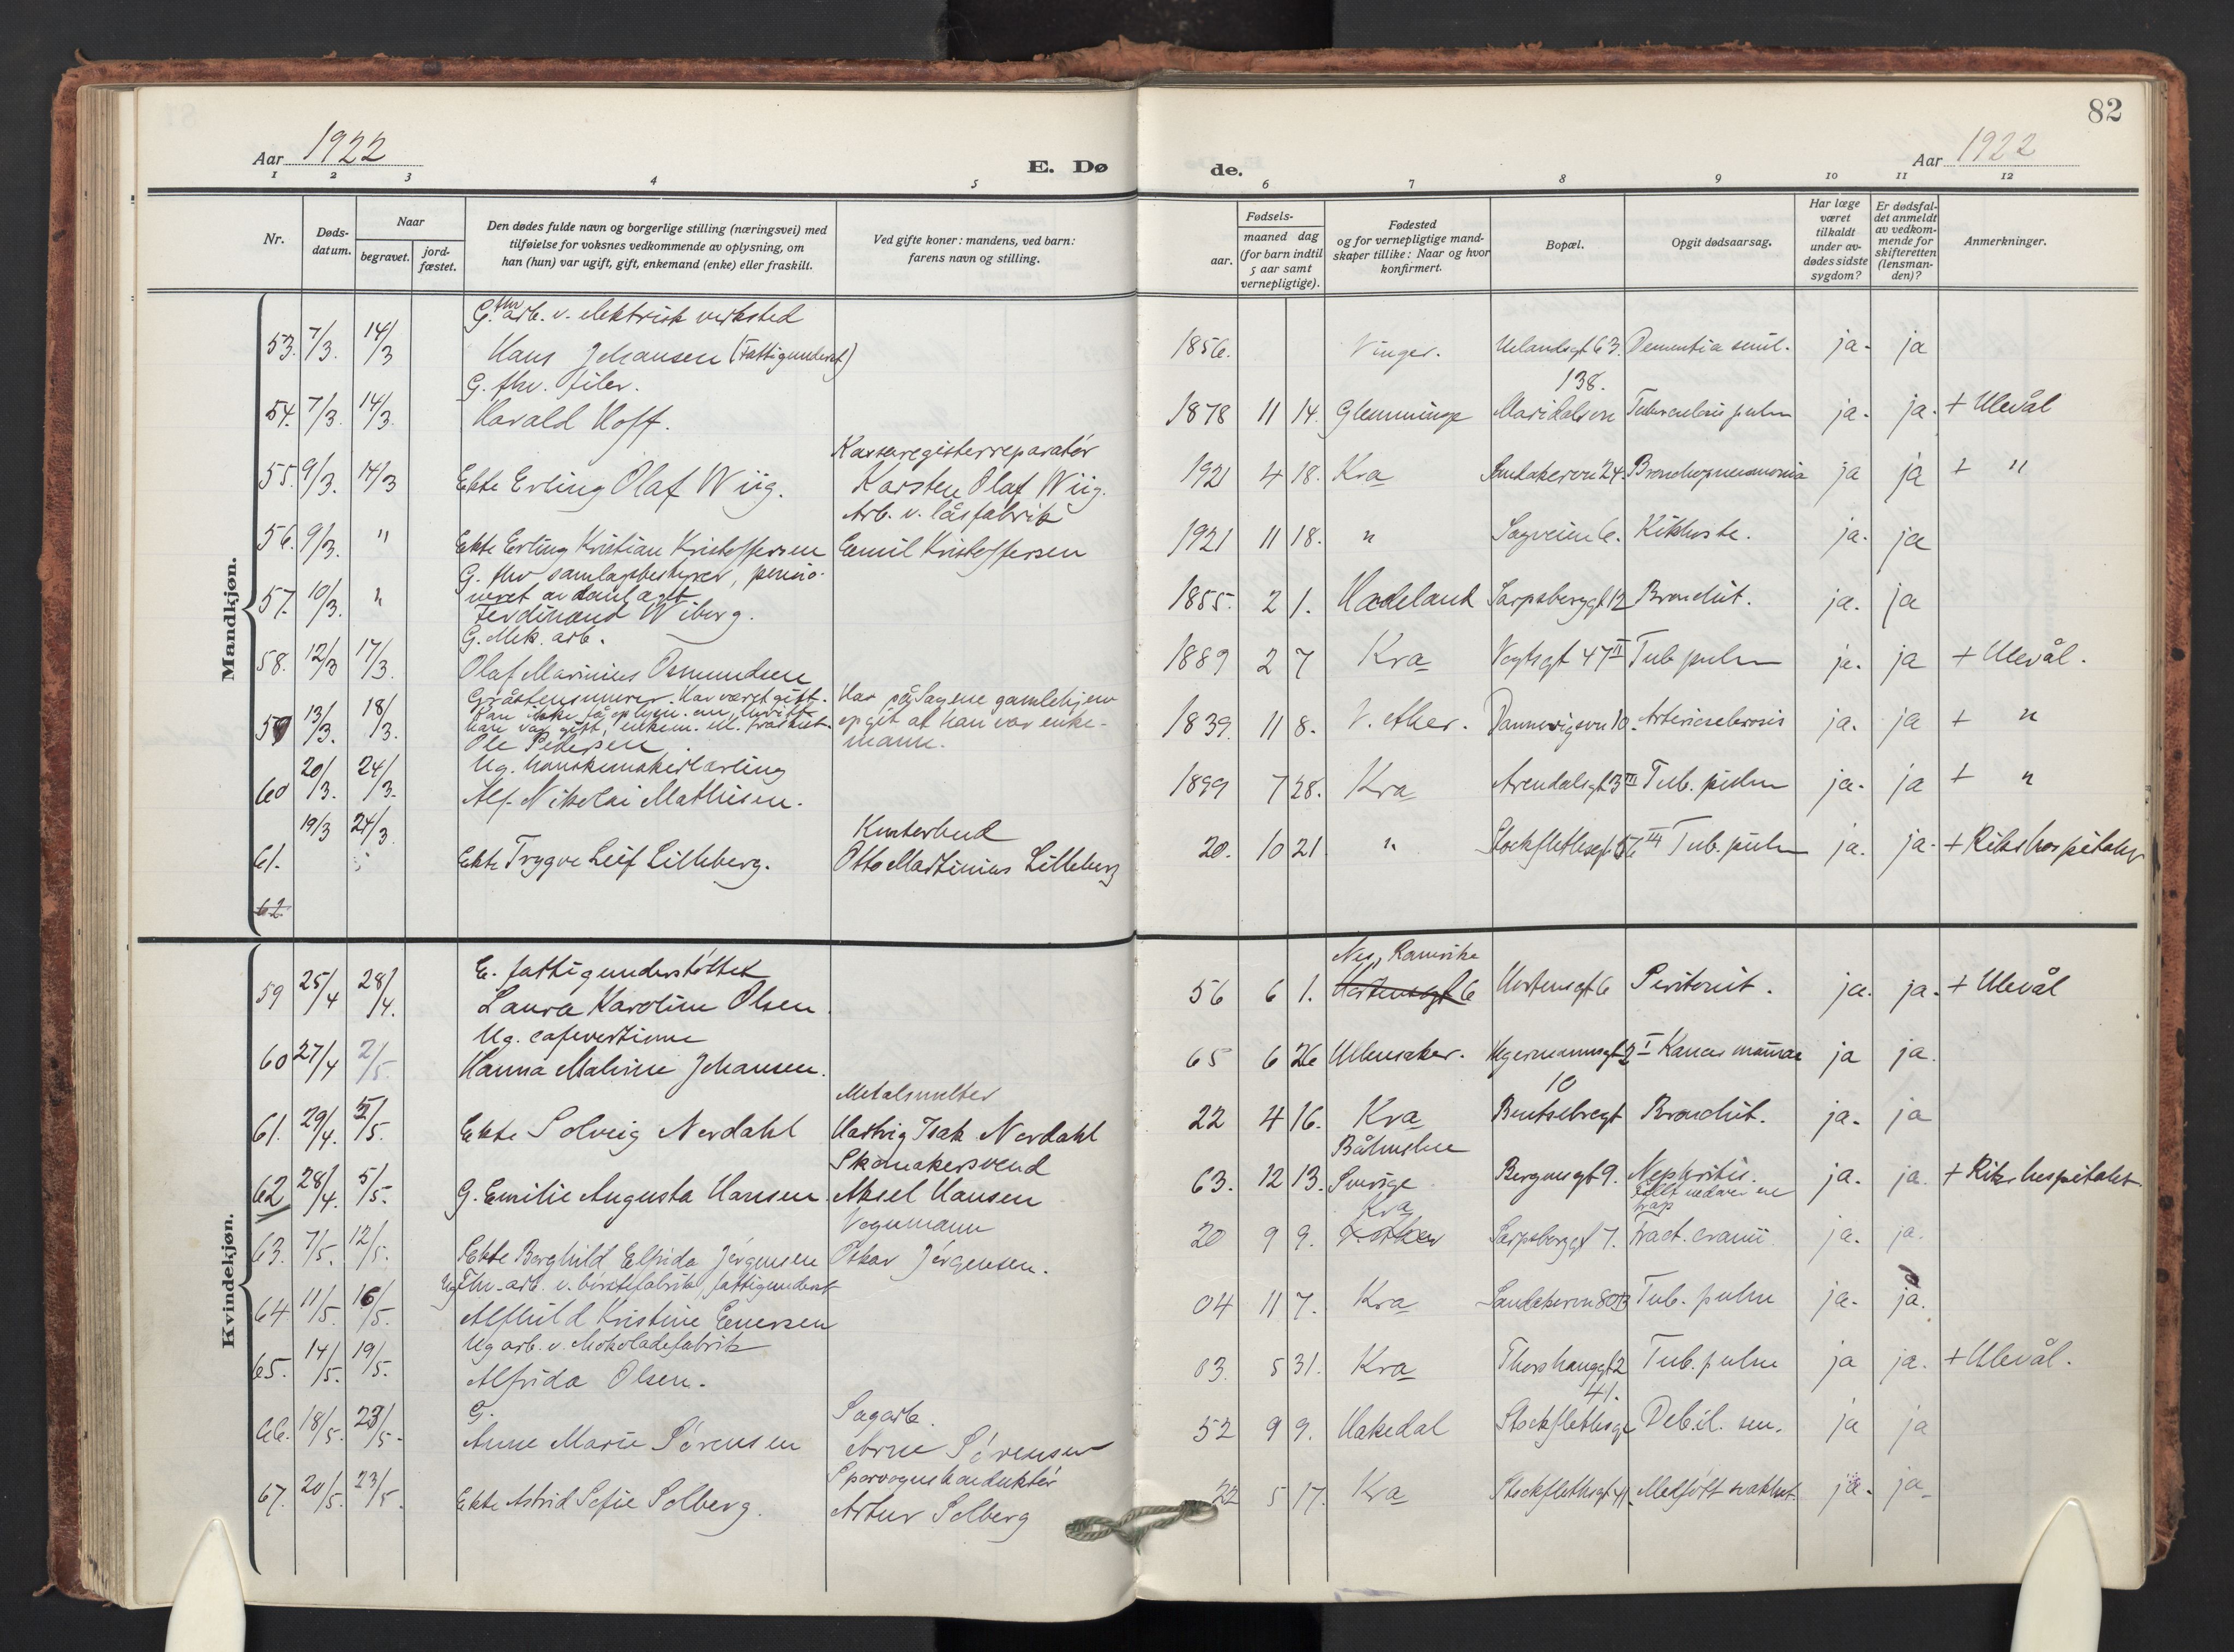 82
Aar 1922
E. Dø
de.
Aar 1922
1 2 3 4 5 6 7 8 9 10 11 12
Nr.
Døds-
datum.
Naar
begravet.
jord-
fæstet.
Den dødes fulde navn og borgerlige stilling (næringsvei) med
tilføielse for voksnes vedkommende av oplysning, om
han (hun) var ugift, gift, enkemand (enke) eller fraskilt.
Ved gifte koner: mandens, ved barn:
farens navn og stilling.
Fødsels-
aar.
maaned dag
(for barn indtil
5 aar samt
vernepligtige).
Fødested
og for vernepligtige mand-
skaper tillike: Naar og hvor
konfirmert.
Bopæl.
Opgit dødsaarsag.
Har læge
været
tilkaldt
under av-
dødes sidste
sygdom?
Er dødsfal-
det anmeldt
av vedkom-
mende for
skifteretten
(lensman-
den)?
Anmerkninger.
Mandkjøn.
G. fhv arb. v. elektrisk verksted
53. 7/3. 14/3 Hans Johansen (Fattigunderst) 1856. Vinger. Uelandsgt 63. Dementia senil. ja. ja
G. fhv. filer.
138.
54. 7/3. 14/3. Harald Hoff. 1878 11 14. Glemminge Maridalsvn Tuberculosis pulm ja. ja. + Ulevål
Kasseregisterreparatør
55. 9/3. 14/3 Ekte Erling Olaf Wiig. Karsten Olaf Wiig. 1921 4 18. Kra Sandakervn 24. Bronchopneumonia ja ja + "
Arb. v. låsfabrik
56. 9/3. " Ekte Erling Kristian Kristoffersen Emil Kristoffersen 1921 11 18. " Sagveien 6. Kikhoste. ja. ja
G. fhv samlagsbestyrer, pensio-
neret av samlaget
57. 10/3. " Ferdinand Wiberg. 1855. 2 1. Hadeland Sarpsborggt 12 Bronchit. ja. ja
G. Mek. arb.
58. 12/3 17/3. Olaf Marinius Osmundsen 1889 2 7 Kra Vogtsgt 47 II Tub pulm ja. ja + Ulevål.
Gråstensmurer. Har været gift. Har på Sagene gamlehjem
Kan ikke få oplysn. om hvorvidt
han var gift, enkem. el. fraskilt. opgit at han var enke-
59 13/3. 18/3. Ole Pedersen. mann. 1839. 11 8. V. Aker. Dannevigsvn 10. Arteriosclerosis ja. ja + "
Ug. hanskemakerlærling
60 20/3. 24/3. Alf Nikolai Mathisen. 1899 7 28. Kra Arendalsgt 3 III Tub. pulm ja. ja + "
Kontorbud
61. 19/3 24/3 Ekte Trygve Leif Lilleberg. Otto Martinius Lilleberg 20. 10 21 " Stockflethsgt 56 III Tub. pulm ja. ja. + Rikshospitalet
62
Kvindekjøn.
E. fattigunderstøttet
Nes, Romerike
59 25/4 28/4. Laura Karoline Olsen. 56 6 1. Hortensgt 6 Hortensgt 6 Peritonit. ja. ja. + Ulevål
Ug. cafevertinne
60 27/4 2/5 Hanna Malvine Johansen. 65 6 26 Ullensaker. Hegermannsgt 2 I Kancer mamae ja ja.
Metalsmelter
10
61. 29/4. 5/5. Ekte Solveig Nordahl Hartvig Isak Nordahl 22 4 16. Kra Bentsebregt Bronchit. ja. ja
Skomakersvend
Båhuslen
62 28/4. 5/5. G. Emilie Augusta Hansen Aksel Hansen 63. 12 13. Sverige Bergensgt 9. Nephritis. ja. ja. + Rikshospitalet
Vognmann
Kra
Falt nedover en
trap
63. 7/5. 12/5. Ekte Borghild Elfrida Jørgensen Oskar Jørgensen. 20 9 9. Sarpsborggt 7. Fract. cranii ja. ja.
Ug Fhv. arb. v. børstefabrik, fattigunderst
64. 11/5. 16/5. Alfhild Kristine Enersen 04 11 7. Kra Sandakervn 80 Tub. pulm ja. ja.
Ug arb. v. chokoladefabrik
65. 14/5. 19/5. Alfrida Olsen. 03. 5 31. Kra Thorshauggt 2 Tub. pulm ja ja. + Ulevål.
G. Sagarb.
41.
66. 18/5. 23/5. Anne Marie Sørensen Arne Sørensen 52 9 9. Hakedal Stockflethsgt Debil. sen. ja ja
Sporvognskonduktør
67. 20/5. 23/5. Ekte Astrid Sofie Solberg. Artur Solberg 22 5 17. Kra Stockflethsgt 41. Medfødt svakhet. ja. ja.